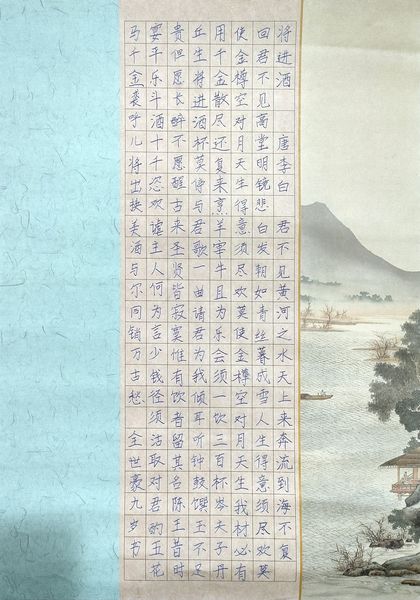 将进酒 唐李白 君不见黄河之水天上来奔流到海不复
回君不见高堂明镜悲白发朝如青丝暮成雪人生得意须尽欢莫
使金樽空对月天生得意须尽欢莫使金樽空对月天生我材必有
用千金散尽还复来烹羊宰牛且为乐会须一饮三百杯岑夫子丹
丘生将进酒杯莫停与君歌一曲请君为我倾耳听钟鼓馔玉不足
贵但愿长醉不愿醒古来圣贤皆寂寞惟有饮者留其名陈王昔时
宴平乐斗酒十千恣欢谑主人何为言少钱径须沽取对君酌五花
马千金裘呼儿将出换美酒与尔同销万古愁 全世豪九岁书